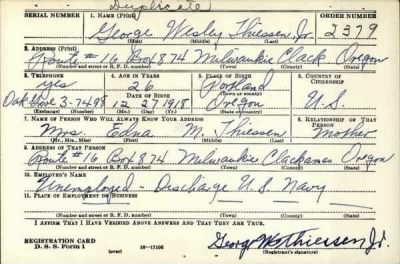 Duplicate
SERIAL NUMBER 1. NAME (Print) ORDER NUMBER
George Wesley Thiessen Jr. 2379
(First) (Middle) (Last)
2. ADDRESS (Print)
Route #16 Box 874 Milwaukie Clack Oregon
(Number and street or R. F. D. number) (Town) (County) (State)
3. TELEPHONE 4. AGE IN YEARS 5. PLACE OF BIRTH 6. COUNTRY OF CITIZENSHIP
yes 26 Portland
DATE OF BIRTH
Oak Grove 3-7498 12 27 1918 Oregon U.S.
(Exchange) (Number) (Mo.) (Day) (Yr.) (State or country)
7. NAME OF PERSON WHO WILL ALWAYS KNOW YOUR ADDRESS 8. RELATIONSHIP OF THAT PERSON
Mrs Edna M. Thiessen Mother
(Mr., Mrs., Miss) (First) (Middle) (Last)
9. ADDRESS OF THAT PERSON
Route #16 Box 874 Milwaukie Clackamas Oregon
(Number and street or R. F. D. number) (Town) (County) (State)
10. EMPLOYER'S NAME
Unemployed - Discharge U.S. Navy
11. PLACE OF EMPLOYMENT OR BUSINESS
(Number and street or R. F. D. number) (Town) (County) (State)
I AFFIRM THAT I HAVE VERIFIED ABOVE ANSWERS AND THAT THEY ARE TRUE.
REGISTRATION CARD
D. S. S. Form 1 (over) 16-17105
George W Thiessen Jr.
(Registrant's signature)